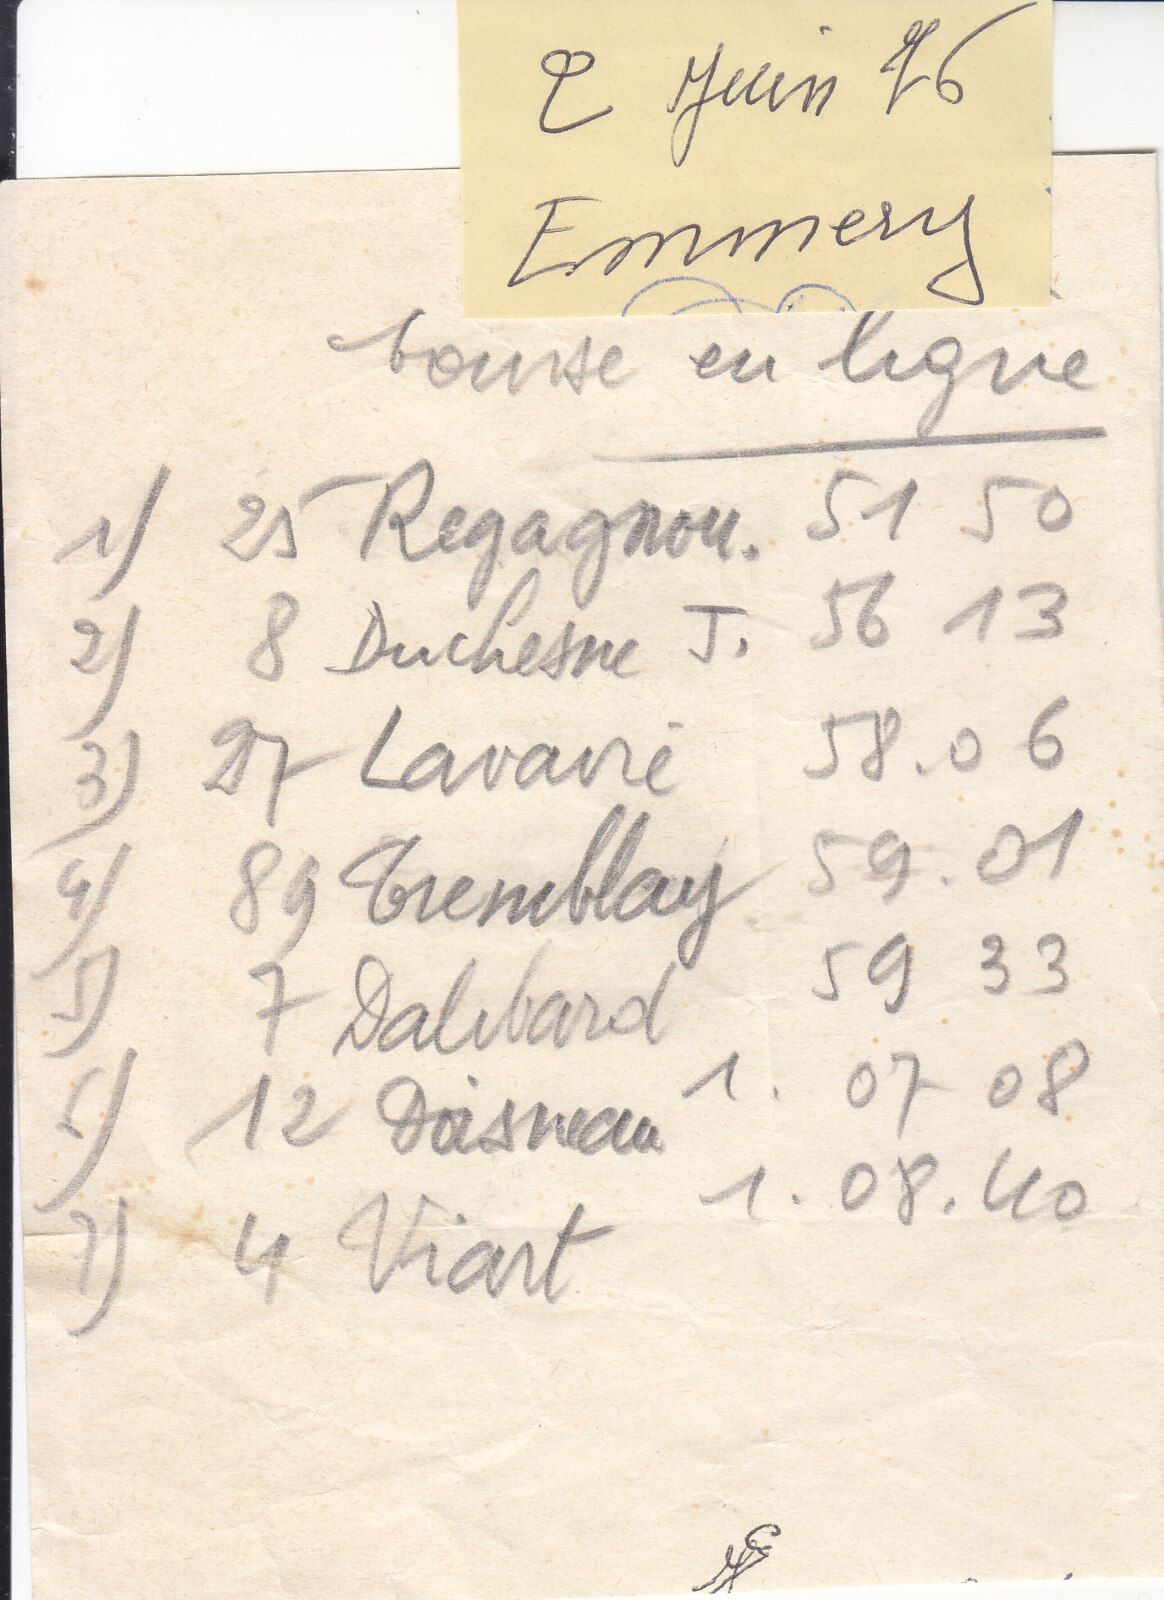 2 Juin 76
Emmery
course en ligne
1) 25 Regagnon. 51 50
2) 8 Duchesne J. 56 13
3) 27 Lavavié 58.06
4) 89 Tremblay 59.01
5) 7 Dalibard 59 33
6) 12 Doisneau 1. 07 08
7) 4 Viart 1. 08.40